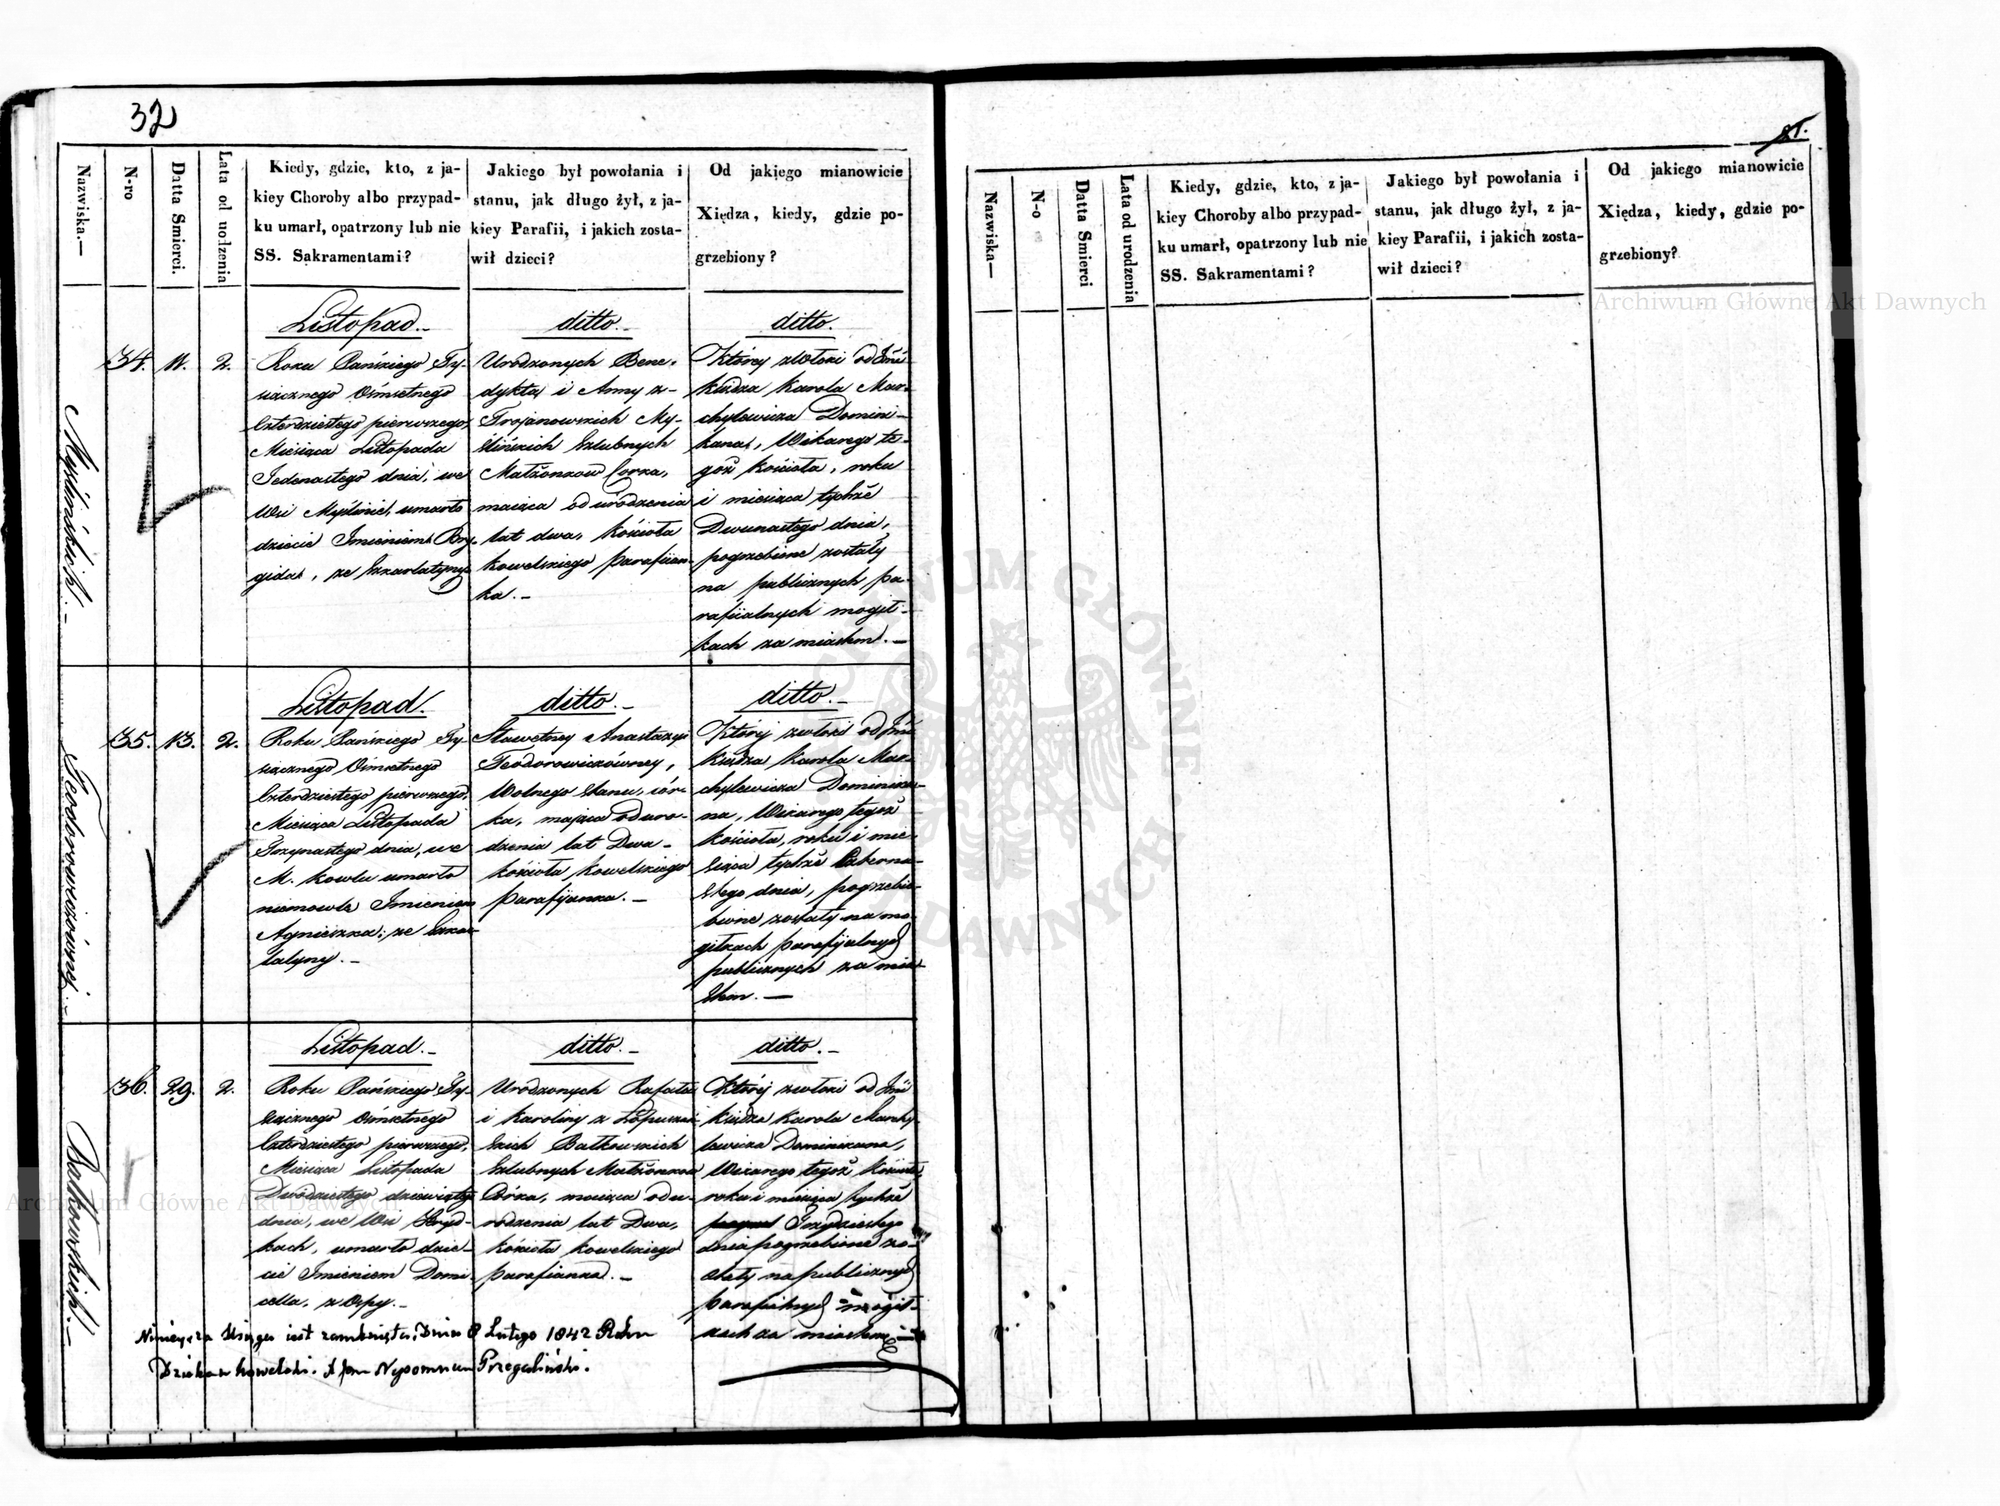 32
Nazwiska.—
N-ro
Datta Smierci.
Lata od urodzenia
Kiedy, gdzie, kto, z ja-
kiey Choroby albo przypad-
ku umarł, opatrzony lub nie
SS. Sakramentami?
Jakiego był powołania i
stanu, jak długo żył, z ja-
kiey Parafii, i jakich zosta-
wił dzieci?
Od jakiego mianowicie
Xiędza, kiedy, gdzie po-
grzebiony?
Myślińskich.—
34.
11.
2.
Listopad.—
Roku Pańskiego Ty-
siącznego Ośmsetnego
Czterdziestego pierwszego,
Miesiąca Listopada
Jedenastego dnia, we
Wsi umarło
dziecie Imieniem Bry-
gida, ze Szkarlatyny
ditto.—
Urodzonych Bene-
dykta i Anny z
Trojanowskich My-
ślińskich Szlubnych
Małżonków Corka,
maiąca od urodzenia
lat dwa, kościoła
kowelskiego parafian-
ka.—
ditto.
Którey zwłoki od
Księdza Karola Mar-
chylewicza Domini-
kana, Wikarego te-
goż kościoła, roku
i miesiąca tychże
Dwunastego dnia,
pogrzebione zostały
na publicznych pa-
rafialnych mogił-
kach za miastem.—
Teodorowiczówney.—
35.
13.
2.
Listopad.
Roku Pańskiego Ty-
siącznego Ośmsetnego
Czterdziestego pierwszego,
Miesiąca Listopada
Trzynastego dnia, we
M. Kowlu umarło
niemowle Imieniem
Agnieszka, ze Szkar-
latyny.—
ditto.—
Sławetney Anastazyi
Teodorowiczówney,
Wolnego stanu, cór-
ka, maiąca od uro-
dzenia lat Dwa
kościoła kowelskiego
parafijanka.—
ditto.—
Którey zwłoki od
Księdza Karola Mar-
chylewicza Dominika-
na, Wikarego tegoż
kościoła, roku i mie-
siąca tychże Czterna-
stego dnia, pogrzebio-
ne zostały na mo-
giłkach parafijalnych
publicznych za mia-
stem.—
Bałkowskich.—
36.
29.
2.
Listopad.—
Roku Pańskiego Ty-
siącznego Ośmsetnego
Czterdziestego pierwszego,
Miesiąca Listopada
Dwódziestego dziewiątego
dnia, we Wsi
umarło dzie-
cie Imieniem Domi-
cella, z Ospy.—
ditto.—
Urodzonych Rafała
i Karoliny z Łopuszań-
skich Bałkowskich
Szlubnych Małżonków
Córka, maiąca od u-
rodzenia lat Dwa,
kościoła kowelskiego
parafianka.—
ditto.—
Którey zwłoki od
Księdza Karola Marchy-
lewicza Dominikana,
Wikarego tegoż kościoła,
roku i miesiąca tychże
Trzydziestego
dnia pogrzebione zo-
stały na publicznych
parafialnych mogił-
kach za miastem.—
Ninieysza Xięga iest zamknięta. Dnia 8 Lutego 1842 Roku
Dziekan Kowelski. Przegaliński.
Nazwiska—
N-o
Datta Smierci
Lata od urodzenia
Kiedy, gdzie, kto, z ja-
kiey Choroby albo przypad-
ku umarł, opatrzony lub nie
SS. Sakramentami?
Jakiego był powołania i
stanu, jak długo żył, z ja-
kiey Parafii, i jakich zosta-
wił dzieci?
Od jakiego mianowicie
Xiędza, kiedy, gdzie po-
grzebiony?
Archiwum Główne Akt Dawnych
Archiwum Główne Akt Dawnych
ARCHIWUM GŁÓWNE AKT DAWNYCH